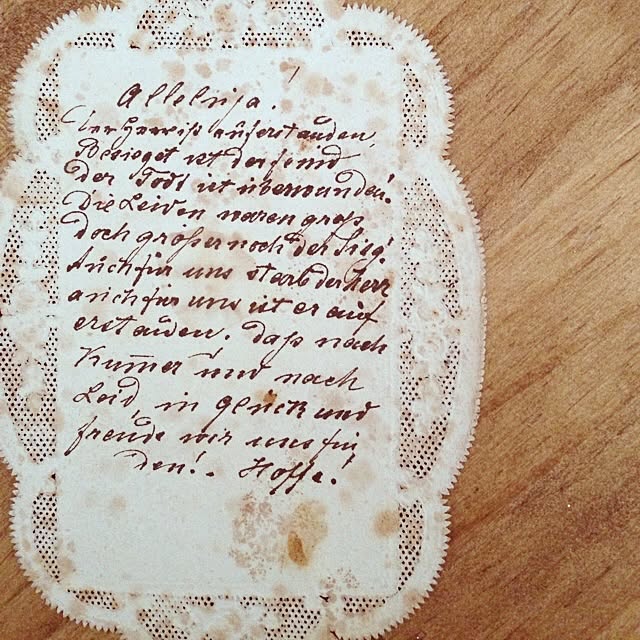 Alleluja!
Der Herr ist auferstanden,
Besieget ist der feind
der Todt ist überwunden!
Die Leiden waren groß
doch größer noch der Sieg!
Auch für uns starb der Herr
auch für uns ist er auf
erstanden. daß nach
Kum̄er und nach
Leid, in Glück und
freude wir uns fin
den! - Hoffe!